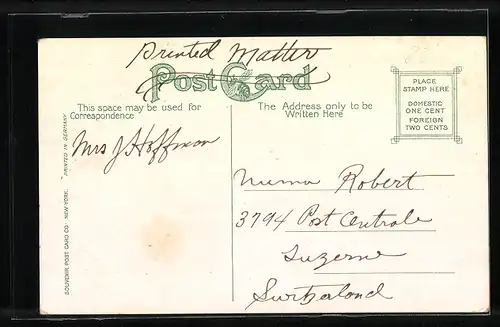 Printed Matter
Post Card
This space may be used for
Correspondence
The Address only to be
Written Here
PLACE
STAMP HERE
DOMESTIC
ONE CENT
FOREIGN
TWO CENTS
Mrs J Hoffman
Numa Robert
3794 Post Centrale
Luzerne
Switzerland
SOUVENIR POST CARD CO. NEW YORK.
PRINTED IN GERMANY